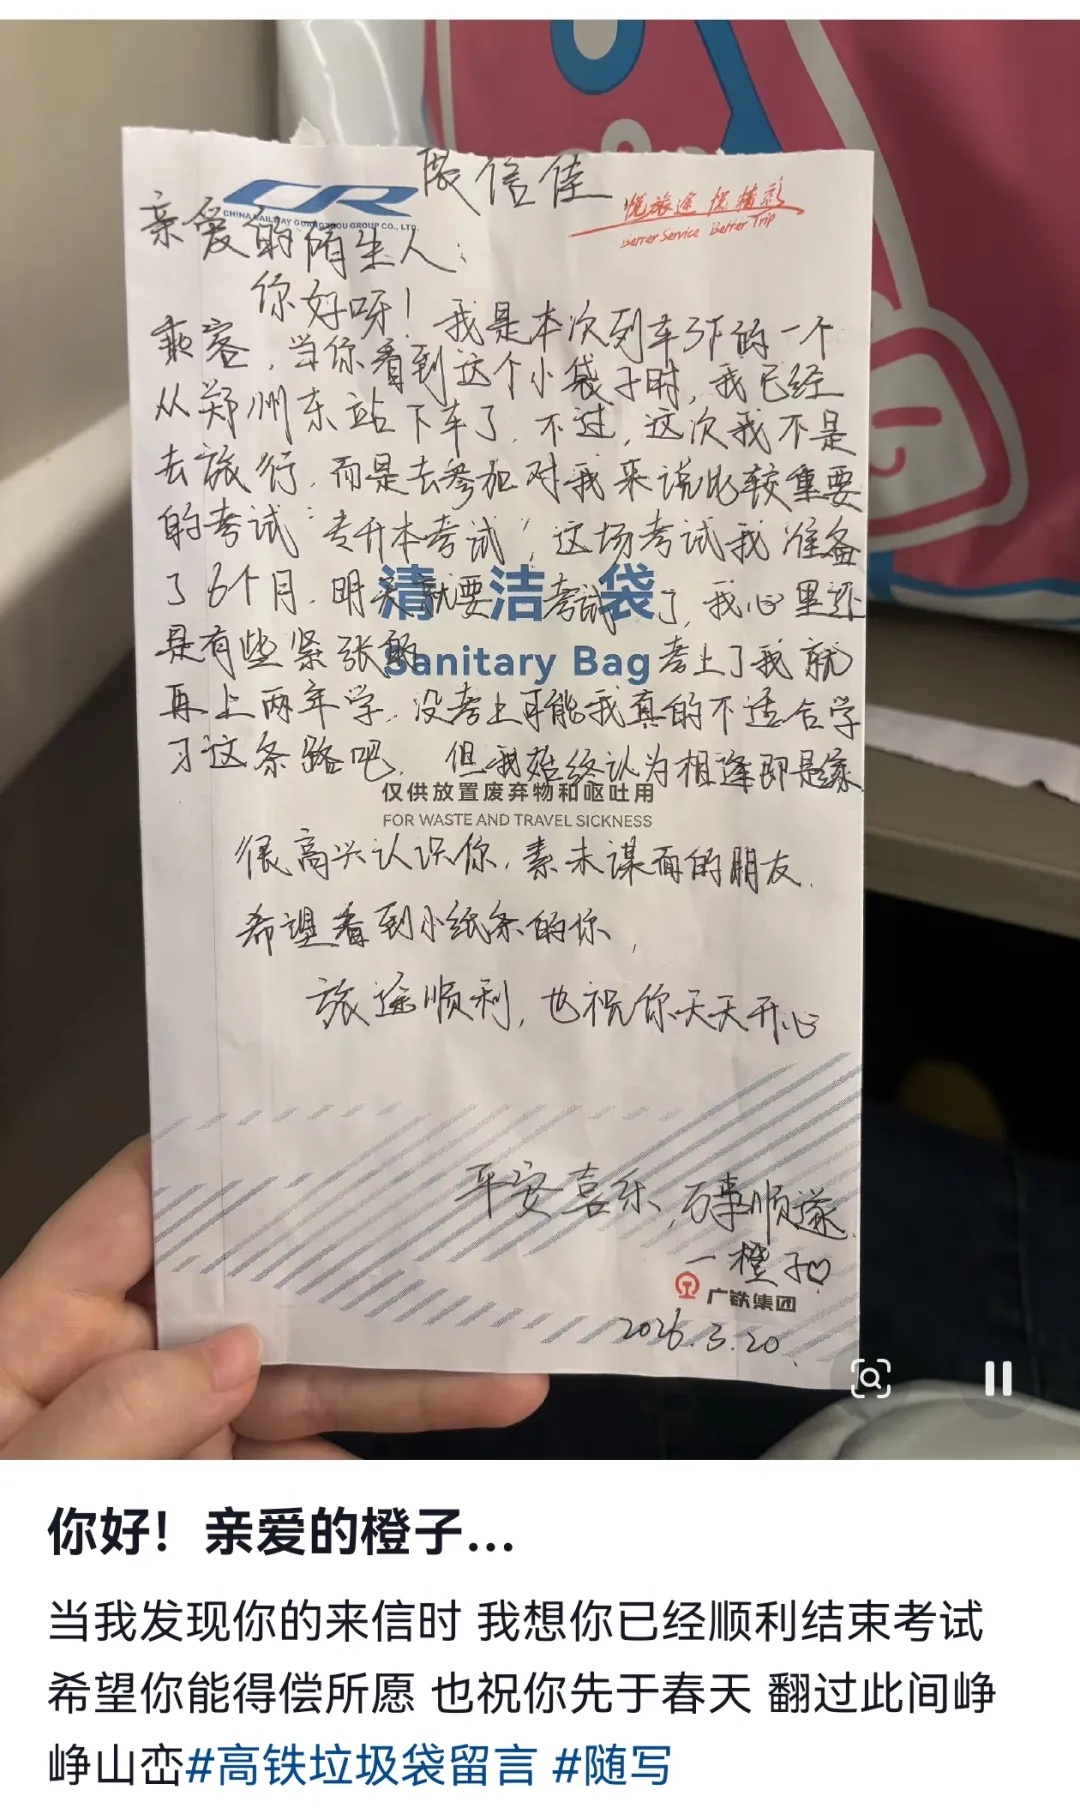 展信佳
CR
CHINA RAILWAY GUANGZHOU GROUP CO., LTD.
悦旅途 悦精彩
Better Service Better Trip
亲爱的陌生人:
你好呀！我是本次列车3F的一个
乘客，当你看到这个小袋子时，我已经
从郑州东站下车了，不过，这次我不是
去旅行，而是去参加对我来说比较重要
的考试“专升本考试”，这场考试我准备
了6个月，明天就要考试了，我心里还
清洁袋
是有些紧张的，考上了我就
Sanitary Bag
再上两年学，没考上可能我真的不适合学
习这条路吧，但我始终认为相逢即是缘
仅供放置废弃物和呕吐用
FOR WASTE AND TRAVEL SICKNESS
很高兴认识你，素未谋面的朋友.
希望看到小纸条的你，
旅途顺利，也祝你天天开心
平安喜乐，万事顺遂
一橙子♡
广铁集团
2026.3.20.
你好！亲爱的橙子...
当我发现你的来信时 我想你已经顺利结束考试
希望你能得偿所愿 也祝你先于春天 翻过此间峥
峥山峦#高铁垃圾袋留言 #随写